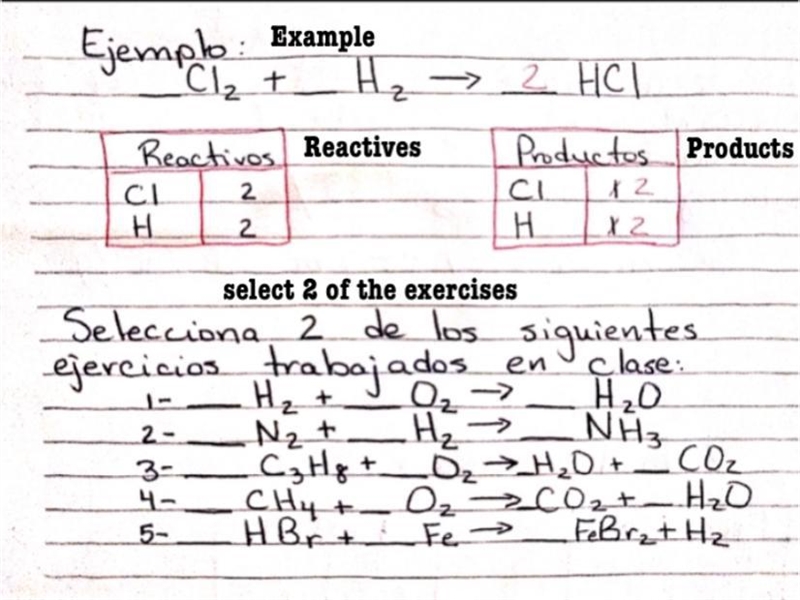 Ejemplo: Example
__Cl₂ + __ H₂ → 2 HCl
Reactivos Reactives Productos Products
Cl 2 Cl 1 2
H 2 H 1 2
select 2 of the exercises
Selecciona 2 de los siguientes
ejercicios trabajados en clase:
1- ___ H₂ + ___ O₂ → ___ H₂O
2- ___ N₂ + ___ H₂ → ___ NH₃
3- ___ C₃H₈ + __O₂ → _H₂O + __ CO₂
4- ___ CH₄ + __ O₂ → _CO₂ + __ H₂O
5- ___ HBr + __ Fe → ___ FeBr₂ + H₂